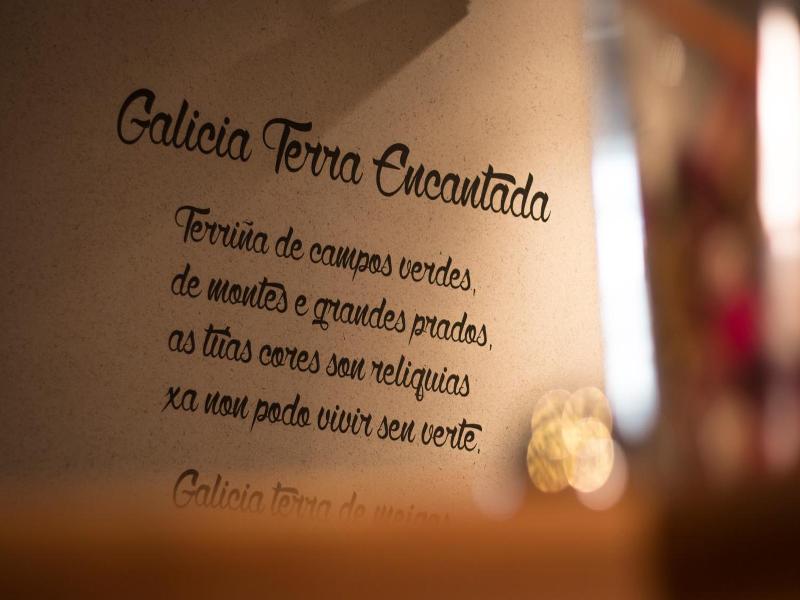 Galicia Terra Encantada
Terriña de campos verdes,
de montes e grandes prados,
as túas cores son reliquias
xa non podo vivir sen verte.
Galicia terra de meigas